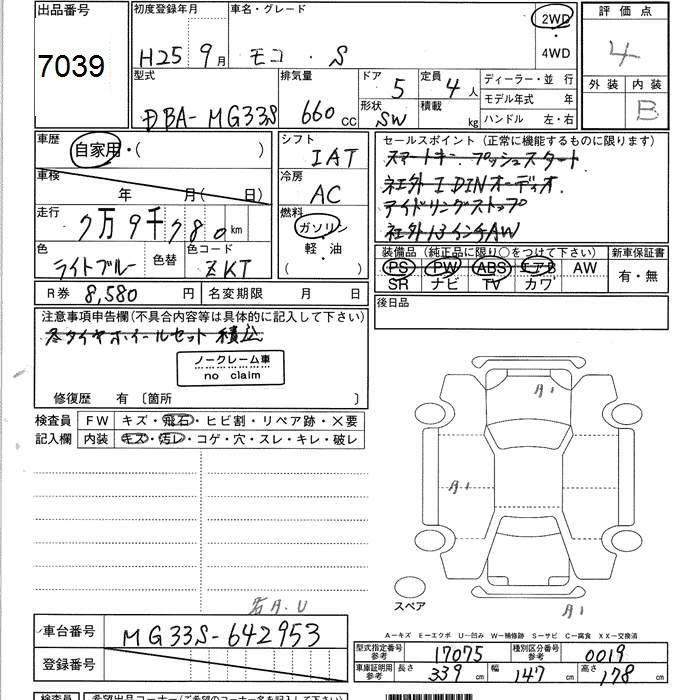 出品番号
7039
初度登録年月
H25 9月
車名・グレード
モコ・S
2WD
4WD
評価点
4
外装 内装
B
型式
DBA-MG33S
排気量
660 cc
ドア
5
形状
SW
定員
4人
積載
kg
ディーラー・並行
モデル年式 年
ハンドル 左・右
車歴
自家用・( )
車検
年 月( 日)
走行
7万9千780km
色
ライトブルー
色替
色コード
ZKT
シフト
IAT
冷房
AC
燃料
ガソリン
軽・油
( )
セールスポイント(正常に機能するものに限ります)
スマートキー プッシュスタート
社外1DINオーディオ
アイドリングストップ
社外13インチAW
装備品(純正品に限り○をつけて下さい)
PS PW ABS エアB AW
SR ナビ TV カワ
新車保証書
有・無
R券 8,580 円
名変期限 月 日
後日品
注意事項申告欄(不具合内容等は具体的に記入して下さい)
冬タイヤホイールセット 積込
ノークレーム車
no claim
修復歴 有〔箇所 〕
検査員
記入欄
FW キズ・飛石・ヒビ割・リペア跡・×要
内装 キズ・汚レ・コゲ・穴・スレ・キレ・破レ
A1
A1
A1
スペア
A-キズ E-エクボ U-凹み W-補修跡 S-サビ C-腐食 XX-交換済
車台番号
MG33S-642953
登録番号
型式指定番号
参考
17075
種別区分番号
参考
0019
車庫証明用
参考
長さ 339cm 幅 147cm 高さ 178cm
検査員 希望出品コーナー(ご希望のコーナー名を記入して下さい)